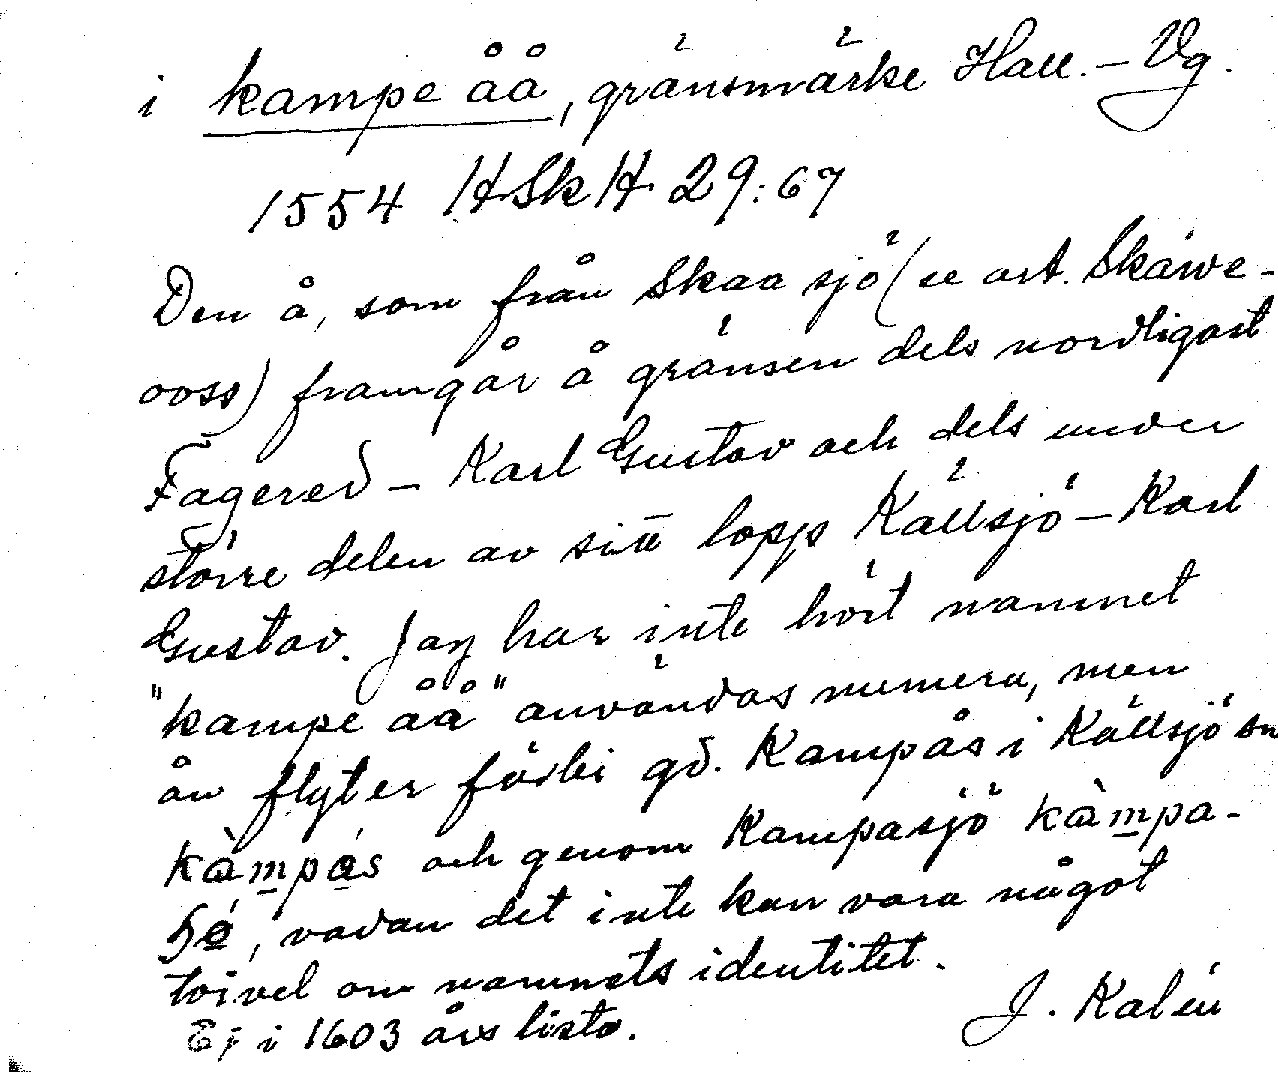 i kampe åå, gränsmärke Hall. – Vg.
1554 HSkH 29:67
Den å, som från Skaa sjö (se art. Skáwe-
ooss) framgår å gränsen dels nordligast
Fagered – Karl Gustav och dels under
större delen av sitt lopp Källsjö – Karl
Gustav. Jag har inte hört namnet
"kampe åå" användas numera, men
ån flyter förbi gd. Kampås i Källsjö sn
och genom Kampasjö
, vadan det inte kan vara något
tvivel om namnets identitet.
Ej i 1603 års lista.
J. Kalén